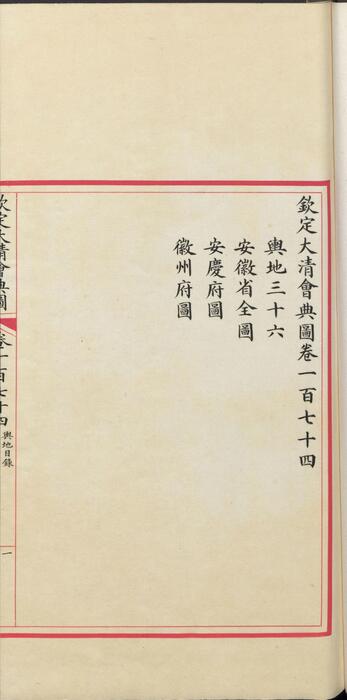 欽定大清會典圖卷一百七十四
輿地三十六
安徽省全圖
安慶府圖
徽州府圖
欽定大清會典圖
卷一百七十四
輿地目錄
一